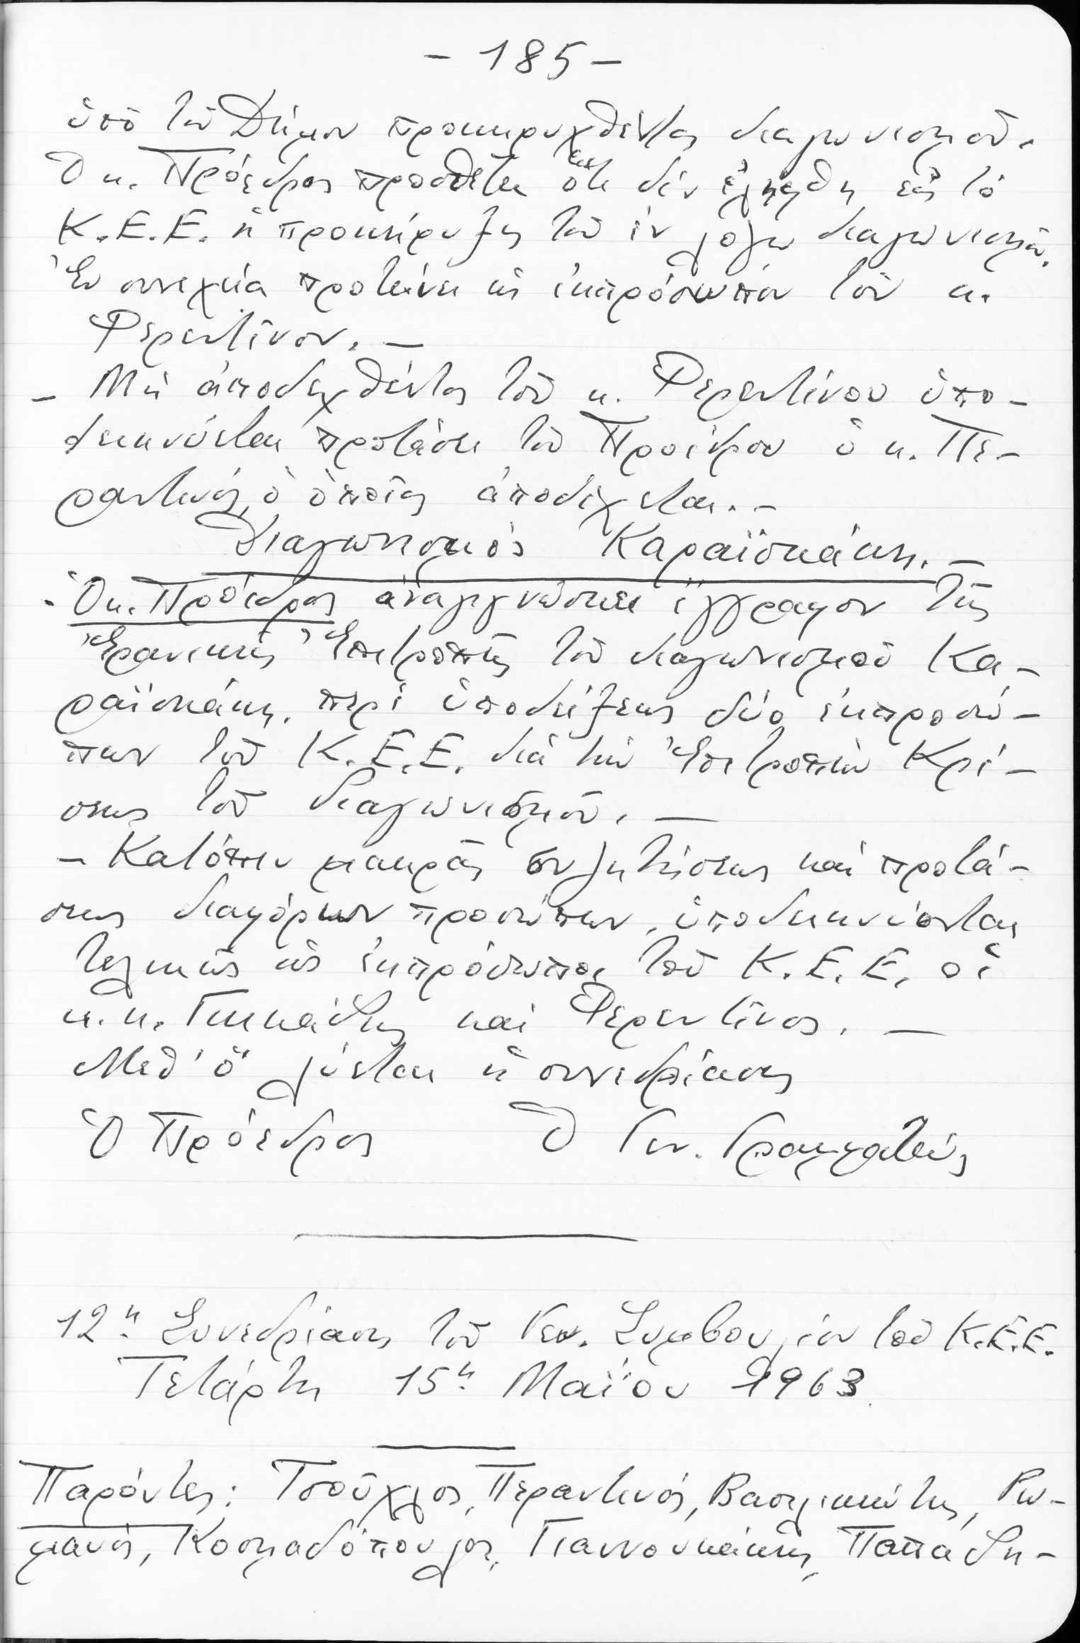 - 185 -
ὑπὸ τοῦ Δήμου προκηρυχθέντος διαγωνισμοῦ.
Ὁ κ. Πρόεδρος προσθέτει ὅτι δέν ἐλήφθη εἰς τό
Κ.Ε.Ε. ἡ προκήρυξις τοῦ ἐν λόγω διαγωνισμοῦ.
Ἐν συνεχεία προτείνει ὡς ἐκπρόσωπον τόν κ.
Φερεντῖνον. -
- Μή ἀποδεχθέντος τοῦ κ. Φερεντίνου ὑπο-
δεικνύεται προτάσει τοῦ Προέδρου ὁ κ. Πε-
ραντινός, ὁ ὁποῖος ἀποδέχεται. -
Διαγωνισμός Καραϊσκάκη. -
- Ὁ κ. Πρόεδρος ἀναγιγνώσκει ἔγγραφον τῆς
Ἐρανικῆς Ἐπιτροπῆς τοῦ διαγωνισμοῦ Κα-
ραϊσκάκη, περί ὑποδείξεως δύο ἐκπροσώ-
πων τοῦ Κ.Ε.Ε. διά τήν Ἐπιτροπήν Κρί-
σεως τοῦ διαγωνισμοῦ. -
- Κατόπιν μακρᾶς συζητήσεως καί προτά-
σεως διαφόρων προσώπων, ὑποδεικνύονται
τελικῶς ὡς ἐκπρόσωποι τοῦ Κ.Ε.Ε. οἱ
κ.κ. Γουναρίδης καί Φερεντῖνος. -
Μεθ' ὅ λύεται ἡ συνεδρίασις
Ὁ Πρόεδρος Ὁ Γεν. Γραμματεύς
12η Συνεδρίασις τοῦ Γεν. Συμβουλίου τοῦ Κ.Ε.Ε.
Τετάρτη 15η Μαΐου 1963
Παρόντες: Τσοῦχλος, Περαντινός, Βασιλικιώτης, Ρω-
μανός, Κοσμαδόπουλος, Γιαννουκάκης, Παπαδη-